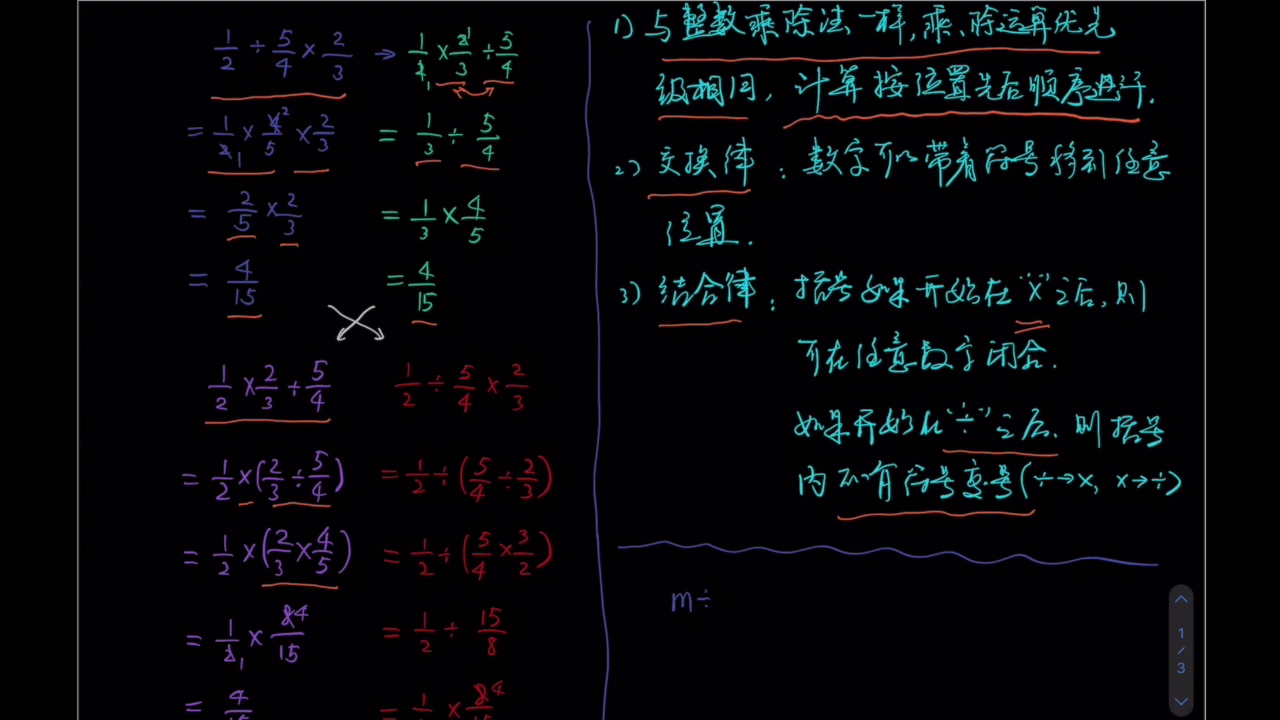 1/2 ÷ 5/4 × 2/3 → 1/2 × 2/3 ÷ 5/4
= 1/2 × 4/5 × 2/3 = 1/3 ÷ 5/4
= 2/5 × 2/3 = 1/3 × 4/5
= 4/15 = 4/15
1/2 × 2/3 ÷ 5/4 1/2 ÷ 5/4 × 2/3
= 1/2 × (2/3 ÷ 5/4) = 1/2 ÷ (5/4 ÷ 2/3)
= 1/2 × (2/3 × 4/5) = 1/2 ÷ (5/4 × 3/2)
= 1/2 × 8/15 = 1/2 ÷ 15/8
= 4/15 = 1/2 × 8/15
1) 与整数乘除法一样,乘、除运算优先
级相同,计算按位置先后顺序进行.
2) 交换律:数字可以带着符号移到任意
位置.
3) 结合律:括号如果开始在"×"之后,则
可在任意数字闭合.
如果开始在"÷"之后,则括号
内所有符号变号(÷→×, ×→÷)
m÷
1
/
3